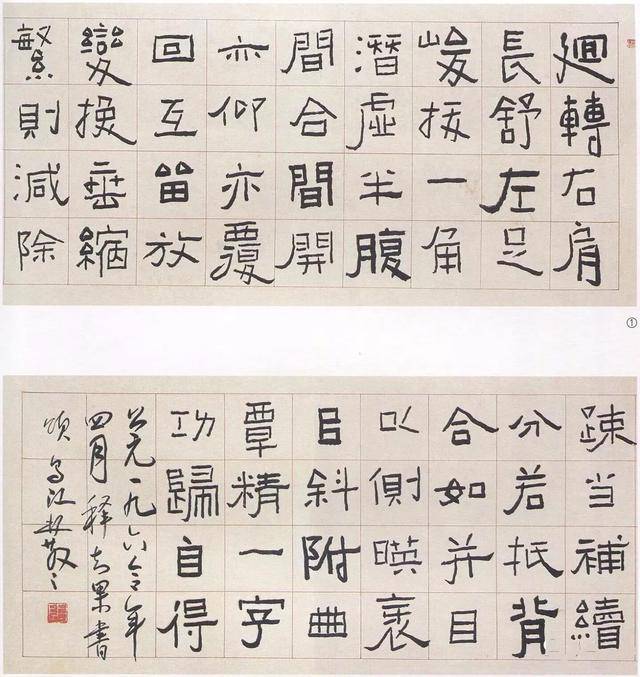 迴轉右肩
長舒左足
峻拔一角
潛虛半腹
間合間開
亦仰亦覆
回互留放
變換垂縮
繁則減除
①
疎当補續
分若抵背
合如并目
以側暎衺
㠯斜附曲
覃精一字
功歸自得
公元一九六令年
四月釋智果書
頌烏江林散之